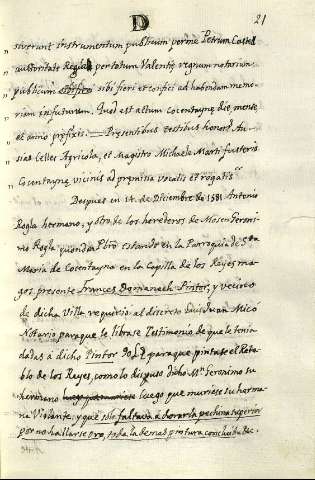 D
21
siverunt instrumentum publicum per me Petrum Castel
auctoritate Regia per totum Valentiȩ regnum notarium
publicum sibi fieri et confici ad habendam memo-
riam in futurum. Quod est actum Cocentaynȩ die mense
et anno prȩfixis. = Presentibus testibus honor. Au-
sias Celles Agricola, et Magistro Michaele Marti fusterio
Cocentaynȩ vicinis ad prȩmissa vocatis et rogatis
Despues en 14 de Diciembre de 1581 Antonio
Rogla hermano, y otro de los herederos de Mosen Geroni-
mo Rogla quondam Pbro estando en la Parroquia de Sta
Maria de Cocentayna en la Capilla de los Reyes ma-
gos, presente Frances Domenech Pintor, y vecino
de dicha Villa requirio al discreto Luis Juan Micó
Notario para que le librase Testimonio de que le tenia
dadas á dicho Pintor 30 L para que pintase el Reta-
blo de los Reyes, como lo dispuso dicho Mn. Geronimo su
hermano luego que muriese su herma-
na Violante, y que solo faltava á dorar la pechina superior
por no hallarse oro, toda la demas pintura concluida &c.